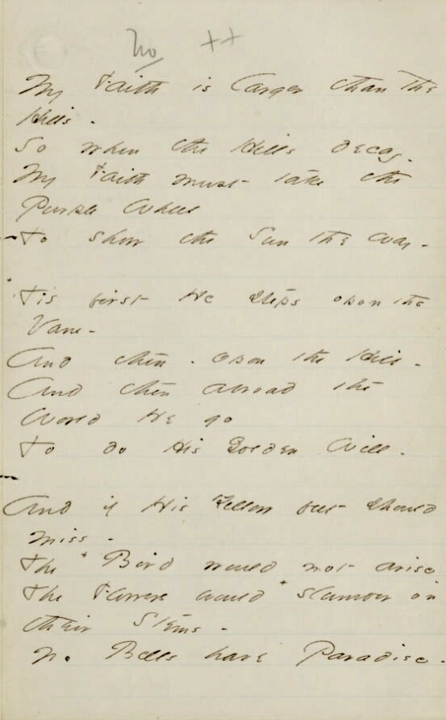 No ++
My Faith is larger than the
Hills -
So when the Hills decay -
My Faith must take the
Purple Wheel
To show the Sun the way -
'Tis first He steps upon the
Vane -
And then - upon the Hill -
And then abroad the
World He go
To do His Golden Will -
And if His Yellow feet should
miss -
The Bird would not arise
The Flowers would slumber on
their Stems -
No Bells have Paradise -